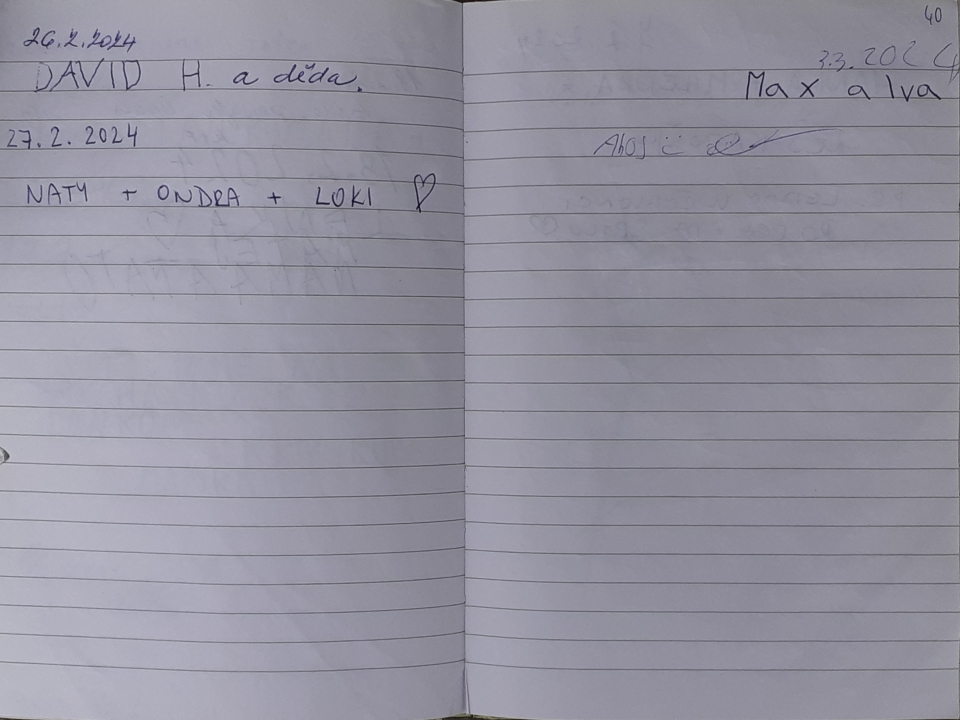 26.2.2024
DAVID H. a děda.
27. 2. 2024
NATY + ONDRA + LOKI ♡
40
3.3.2024
Max a Iva
Ahoj :)